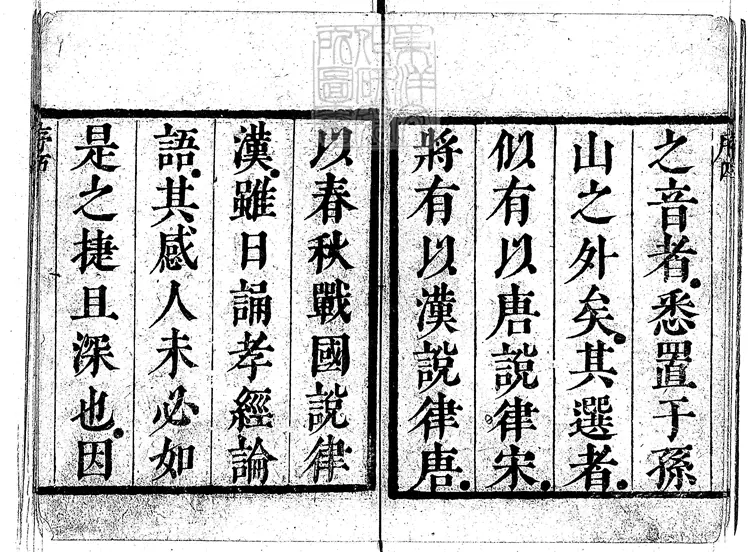 之音者。悉置于孫
山之外矣。其選者。
似有以唐說律宋。
將有以漢說律唐。
以春秋戰國說律
漢。雖日誦孝經論
語。其感人未必如
是之捷且深也。因
序五